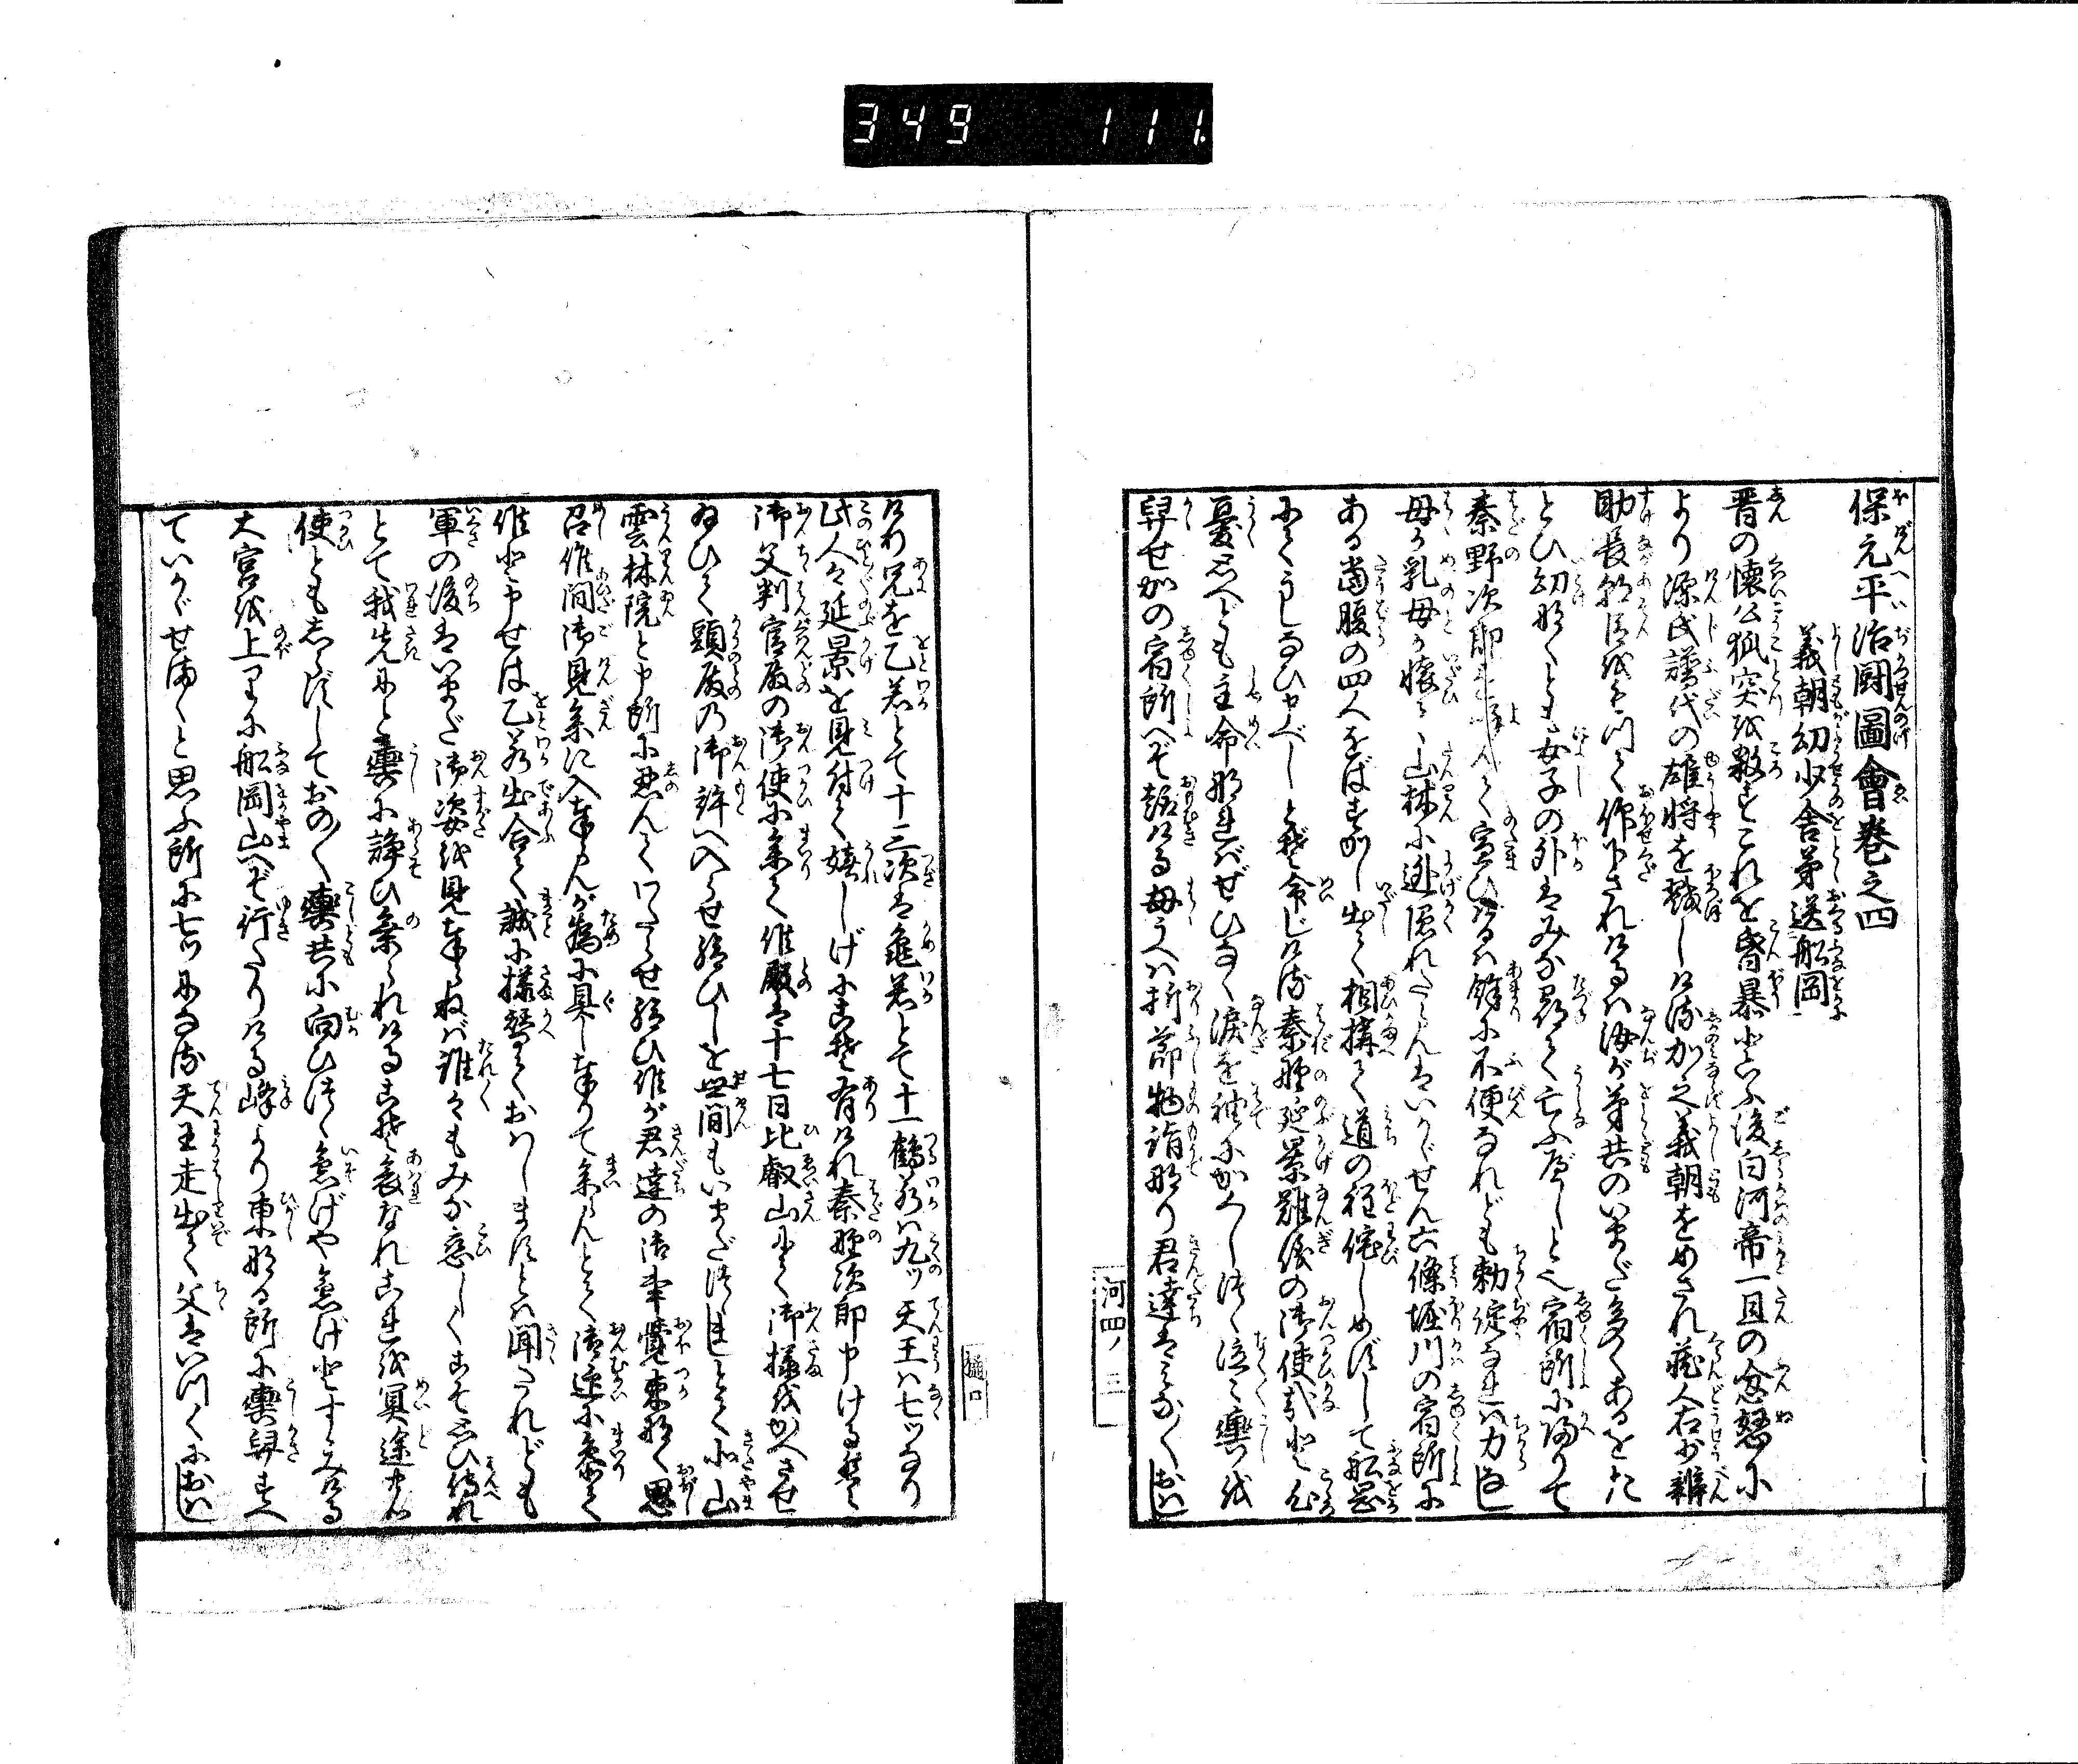 349 111
保元平治闘圖會巻之四
義朝幼少舎弟送船岡
晋の懐公狐突を殺すこれを昏暴といふ後白河帝一旦の忿怒に
より源氏譜代の雄将を戮しける加之義朝をめされ蔵人右少辨
助長朝臣をもつて仰下されけるハ汝が弟共のいまだ多くあるをた
とひ幼なくとも女子の外はみな尋て亡ふべしと也宿所に帰りて
秦野次郎を人て宣ひけるハ餘に不便なれども勅定なれハ力なし
母か乳母か懐て山林に逃隠れたらんはいかゞせん六條堀川の宿所に
ある當腹の四人をばすかし出て相構て道の程侘しめずして船岡
にてうしなひ申べしとぞ命じける秦野延景難儀の御使哉と心
憂思へども主命なればぜひなく涙を袖にかくしつゝ泣々輿を
舁せかの宿所へぞ趣ける母うへハ折節物詣なり君達はみな〳〵おはし
けり兄を乙若とて十三次は亀若とて十一鶴若ハ九ツ天王ハ七ツなり
此人々延景を見付て嬉しげにこそ有けれ秦野次郎申けるは
御父判官殿の御使に参て候殿は十七日比叡山にて御様をかへさせ
給ひて頭殿の御許へ入らせ給ひしを世間もいまだつゝましとて北山
雲林院と申所に忍んでわたらせ給ひ候が君達の御事覚束なく思
召候間御見参に入奉らんが為に具し奉りて参らんとて御迎に参て
候と申せは乙若出合て誠に様替ておハしますとハ聞つれども
軍の後はいまだ御姿を見奉らねば誰々もみな恋しくこそ思ひ侍れ
とて我先にと輿に諍ひ乗られけるこそ哀なれこれを冥途の
使ともしらずしておの〳〵輿共に向ひつゝ急げや急げとすゝみける
大宮を上りに船岡山へぞ行たりける峰より東なる所に輿舁すへ
ていかゞせましと思ふ所に七ツになる天王走出て父はいづくにおはし
河四ノ 三
樋口